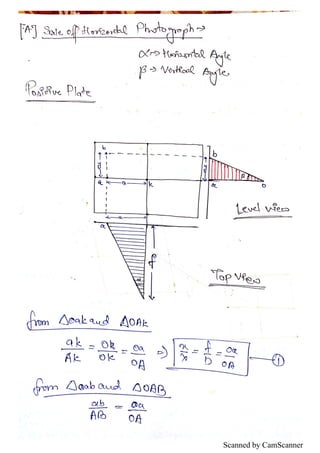 [A*] Sale of Horizondal Photograph →
α → Horizontal Angle
β → Vertical Angle
Positive Plate
b
b
a
k
a
o
β
Level view
a
f
Top View
from Δoak and ΔOAK
ak/AK = ok/OK = oa/OA ⇒ x/X = f/D = oa/OA ①
from Δoab and ΔOAB
ab/AB = oa/OA
Scanned by CamScanner